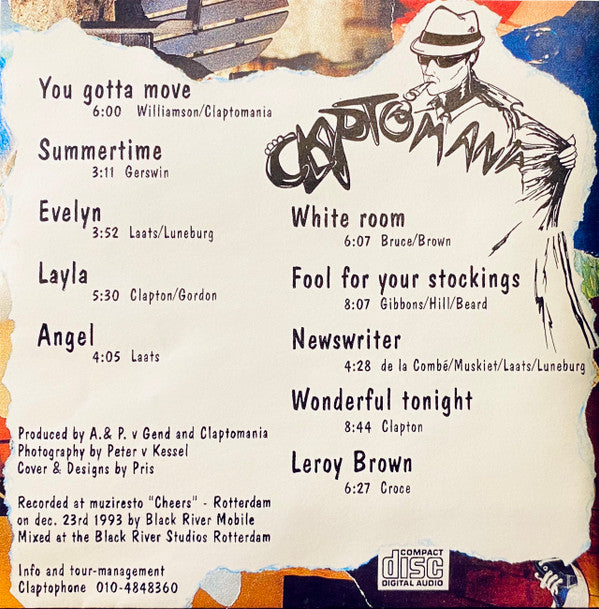 You gotta move
6:00 Williamson/Claptomania
Summertime
3:11 Gerswin
Evelyn
3:52 Laats/Luneburg
Layla
5:30 Clapton/Gordon
Angel
4:05 Laats
CLAPTOMANIA
White room
6:07 Bruce/Brown
Fool for your stockings
8:07 Gibbons/Hill/Beard
Newswriter
4:28 de la Combé/Muskiet/Laats/Luneburg
Wonderful tonight
8:44 Clapton
Leroy Brown
6:27 Croce
Produced by A.& P. v Gend and Claptomania
Photography by Peter v Kessel
Cover & Designs by Pris
Recorded at muziresto "Cheers" - Rotterdam
on dec. 23rd 1993 by Black River Mobile
Mixed at the Black River Studios Rotterdam
Info and tour-management
Claptophone 010-4848360
COMPACT
disc
DIGITAL AUDIO